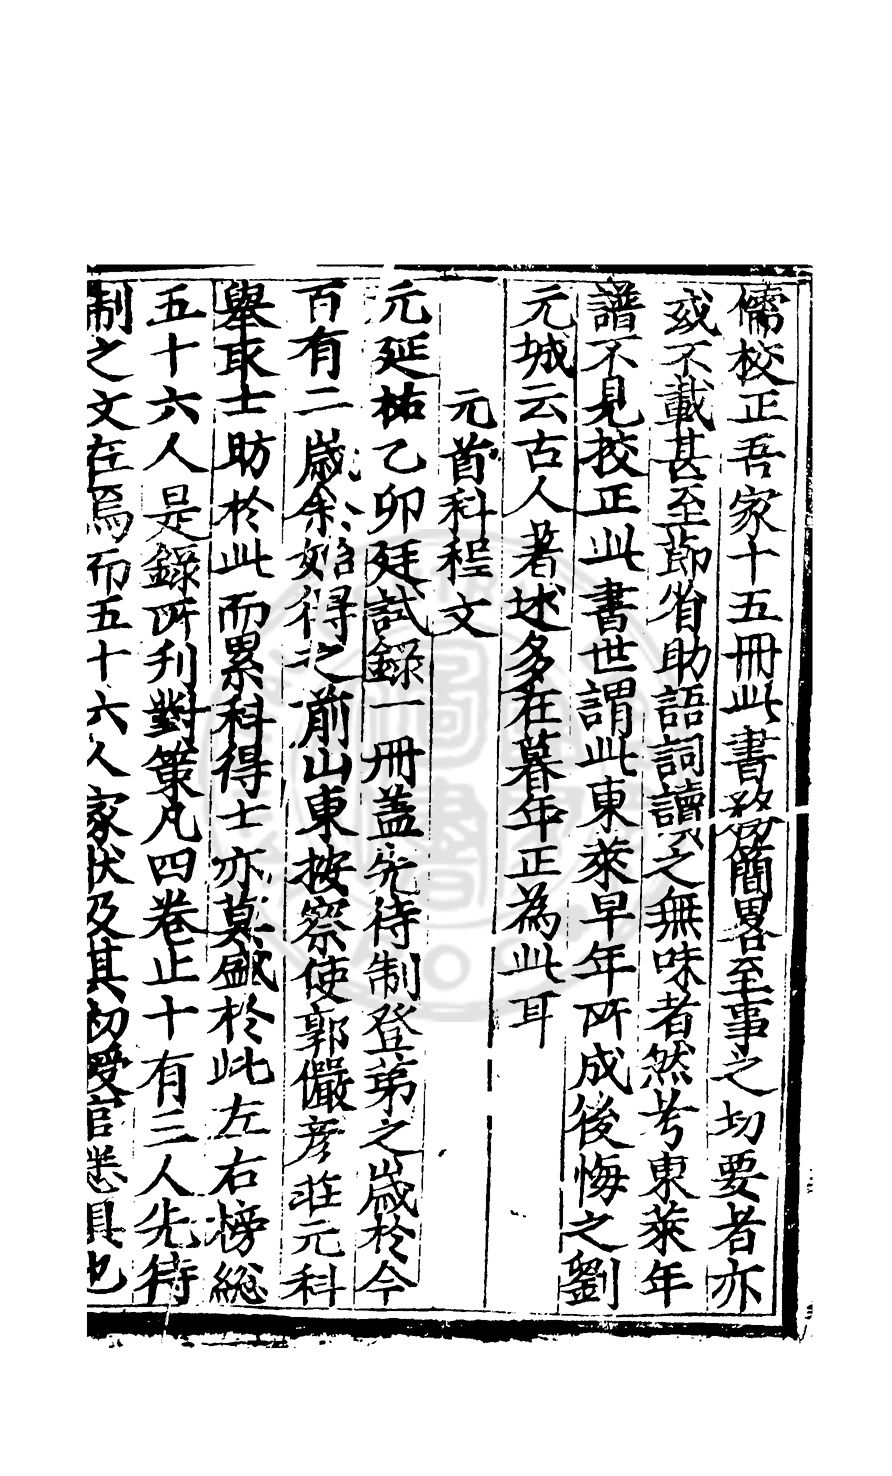 儒校正吾家十五冊此書務簡畧至事之切要者亦
或不載甚至節省助語詞讀之無味者然考東萊年
譜不見挍正此書世謂此東萊早年所成後悔之劉
元城云古人著述多在暮年正為此耳
元首科程文
元延祐乙卯廷試録一冊蓋先待制登苐之歲於今
百有二歲余始得之前山東按察使郭儼彦莊元科
舉取士昉於此而累科得士亦莫盛於此左右榜総
五十六人是錄所刋對策凡四卷止十有三人先待
制之文在焉而五十六人家状及其初受官悉具也